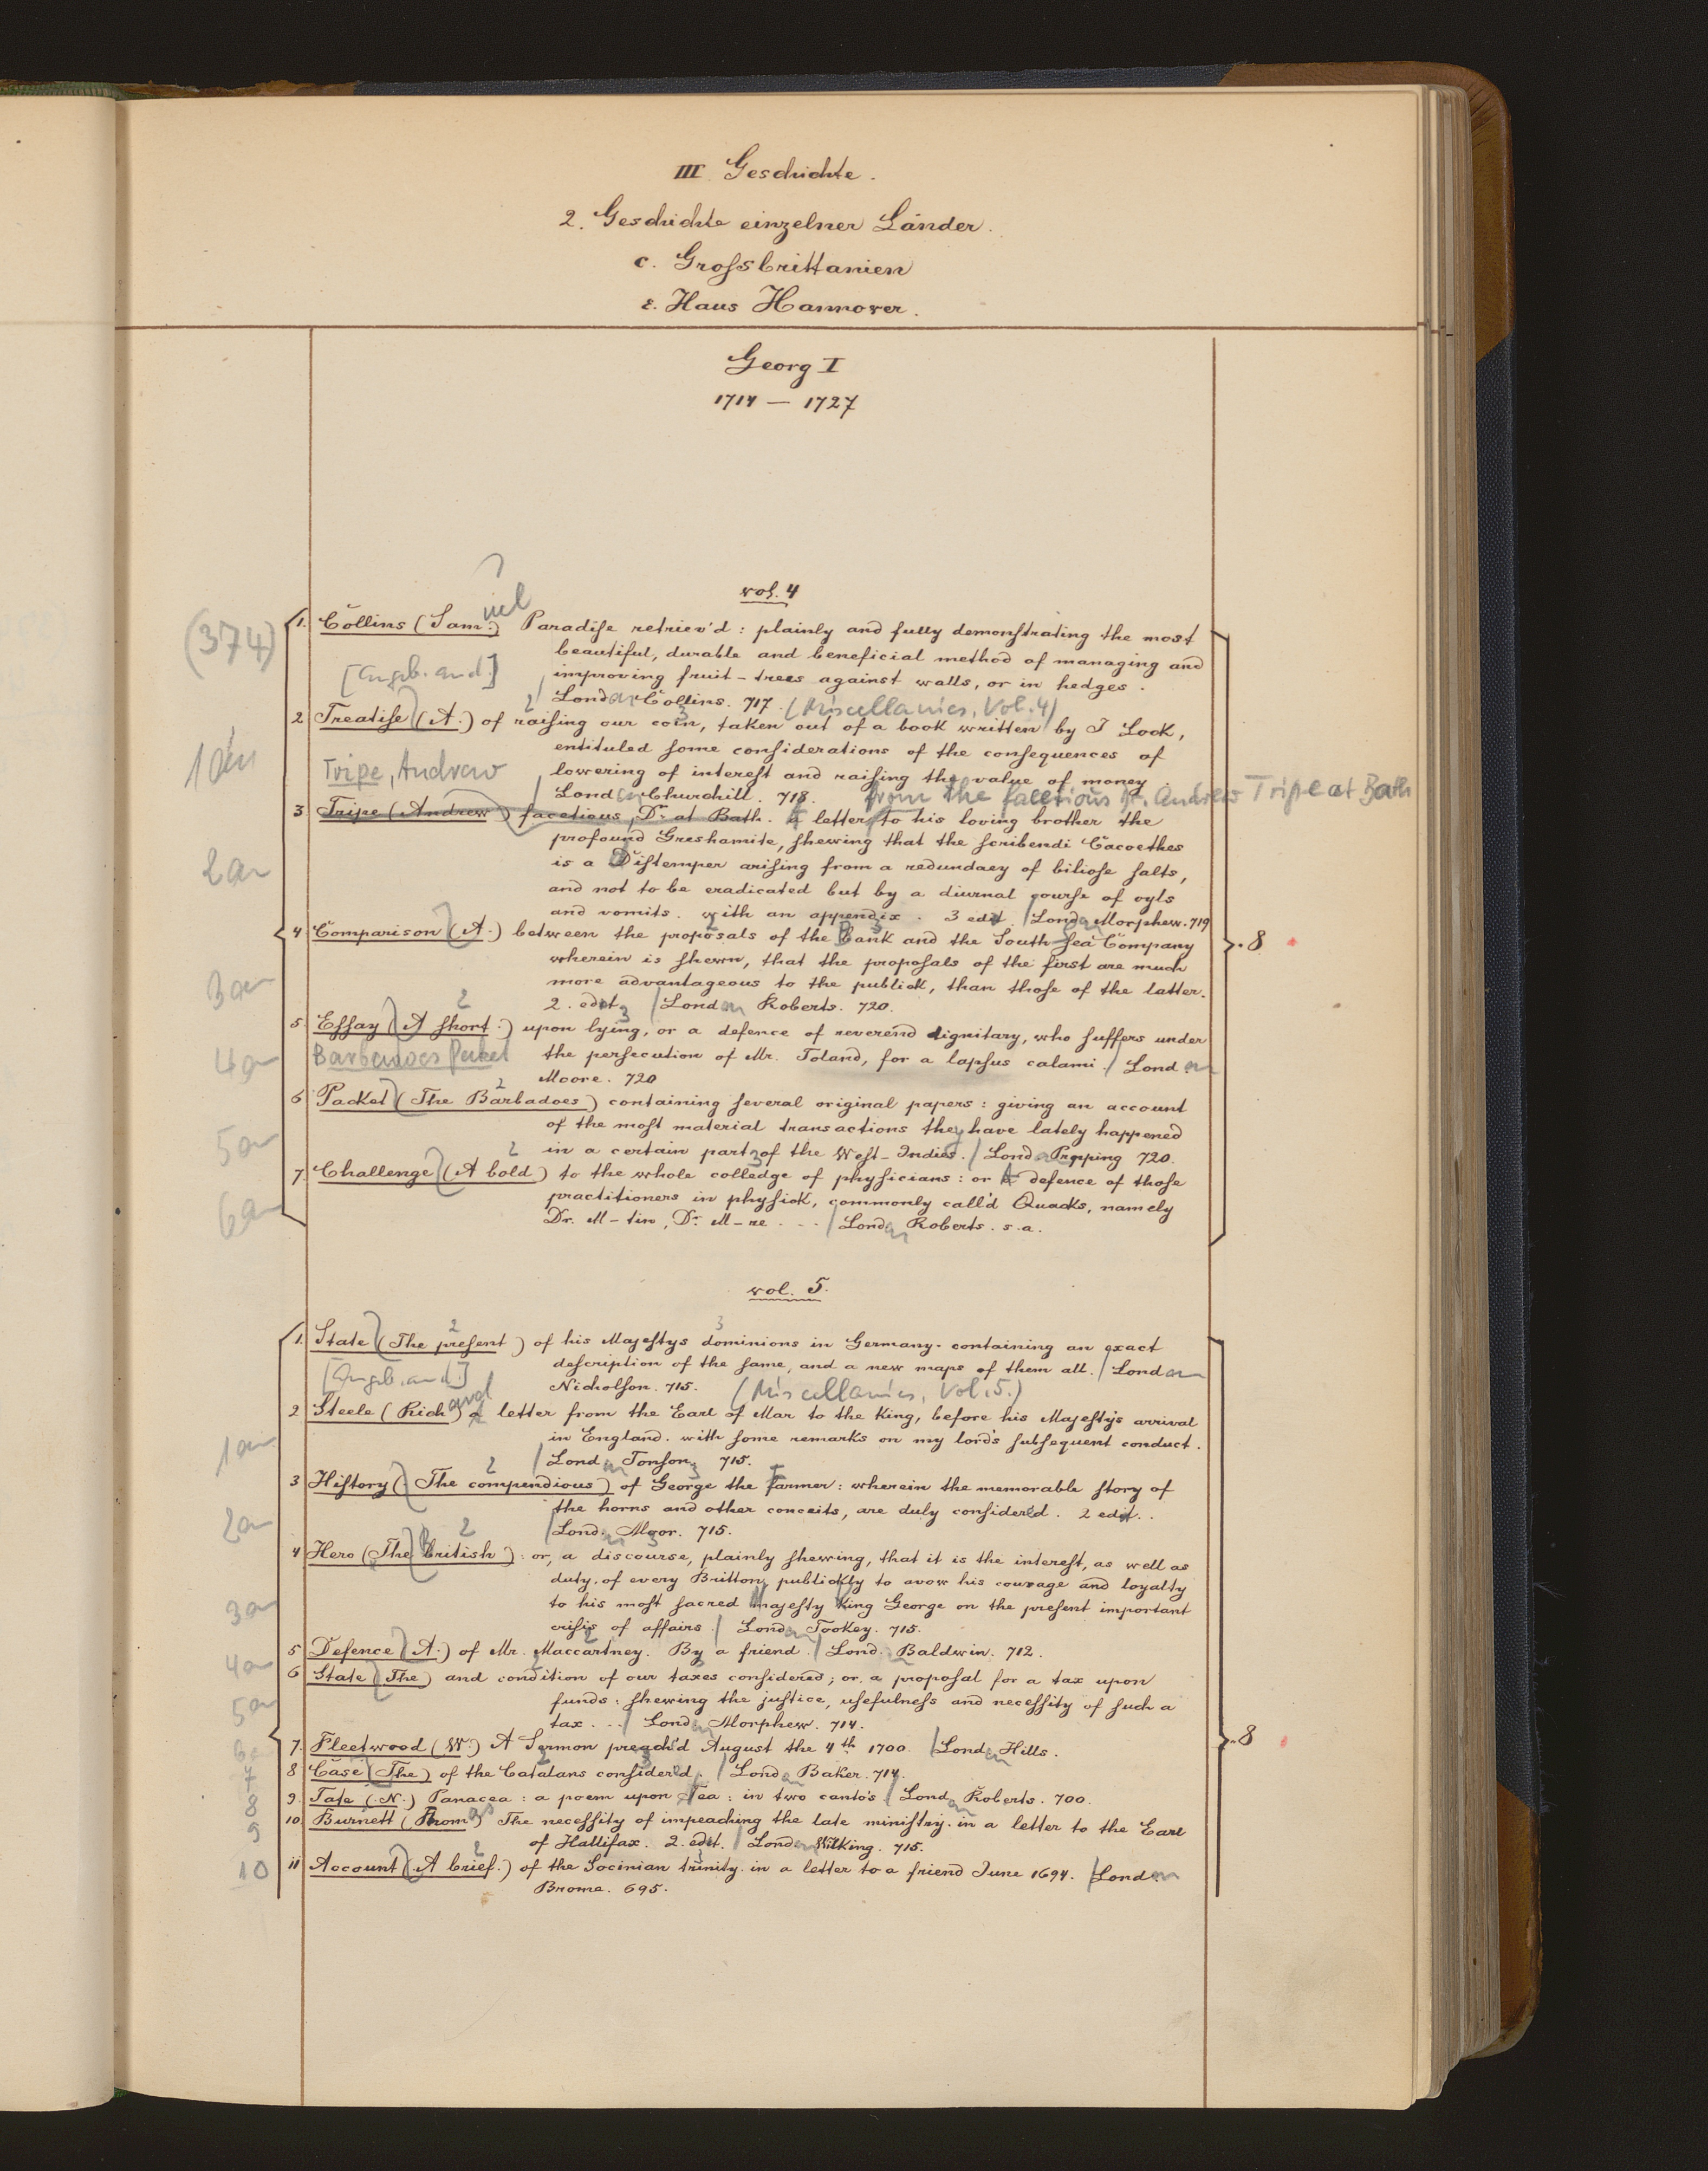 III. Geschichte.
2. Geschichte einzelner Länder.
c. Grossbrittanien
ε. Haus Hannover.
Georg I
1714 — 1727
vol. 4
(374)
1. Collins (Sam.) iel Paradise retriev'd: plainly and fully demonstrating the most
beautiful, durable and beneficial method of managing and
[Angeb. and.] improving fruit-trees against walls, or in hedges.
London Collins. 717. (Miscellanies, Vol. 4)
2 Treatise (A.) of raising our coin, taken out of a book written by J Lock,
entituled some considerations of the consequences of
1an Tripe, Andrew lowering of interest and raising the value of money
London Churchill. 718. from the facetious Dr. Andrew Tripe at Bath
3 Tripe (Andrew) facetious, Dr. at Bath. A letter to his loving brother the
profound Greshamite, shewing that the scribendi Cacoethes
2an is a Distemper arising from a redundacy of biliose salts,
and not to be eradicated but by a diurnal course of oyls
and vomits. with an appendix. 3 edit. London Morphew. 719
4 Comparison (A.) between the proposals of the Bank and the South-Sea Company
wherein is shewn, that the proposals of the first are much
3an more advantageous to the publick, than those of the latter.
2. edit. London Roberts. 720.
5. Essay (A short.) upon lying, or a defence of reverend dignitary, who suffers under
4an Barbadoes Packet the persecution of Mr. Toland, for a lapsus calami. London
Moore. 720
6 Packet (The Barbadoes) containing several original papers: giving an account
of the most material transactions they have lately happened
5an in a certain part of the West-Indies. London Popping 720.
7. Challenge (A bold) to the whole colledge of physicians: or A defence of those
6an practitioners in physick, commonly call'd Quacks, namely
Dr. M-tin, Dr. M-re - - - London Roberts. s.a.
8
vol. 5.
1. State (The present) of his Majestys dominions in Germany. containing an exact
description of the same, and a new maps of them all. London
[Angeb. and.] Nicholson. 715. (Miscellanies, Vol. 5.)
2 Steele (Rich) ard A letter from the Earl of Mar to the King, before his Majesty's arrival
1an in England. with some remarks on my lord's subsequent conduct.
London Tonson. 715.
3 History (The compendious) of George the Farmer: wherein the memorable story of
2an the horns and other conceits, are duly considered. 2 edit.
London Moor. 715.
4 Hero (The British): or, a discourse, plainly shewing, that it is the interest, as well as
duty, of every Britton, publickly to avow his courage and loyalty
3an to his most sacred Majesty King George on the present important
crisis of affairs. London Tookey. 715.
5 Defence (A.) of Mr. Maccartney. By a friend. London Baldwin. 712.
4an
6 State (The) and condition of our taxes considered; or, a proposal for a tax upon
5an funds: shewing the justice, usefulness and necessity of such a
tax. .. London Morphew. 714.
7. Fleetwood (W.) A Sermon preach'd August the 4th 1700. London Hills.
8 Case (The) of the Catalans considered. London Baker. 714.
7
9. Tate (N.) Panacea: a poem upon Tea: in two canto's. London Roberts. 700.
8
10. Burnett (Thom) as The necessity of impeaching the late ministry. in a letter to the Earl
9 of Hallifax. 2. edit. London Wilking. 715.
11 Account (A brief.) of the Socinian trinity. in a letter to a friend June 1694. London
10 Brome. 695.
8